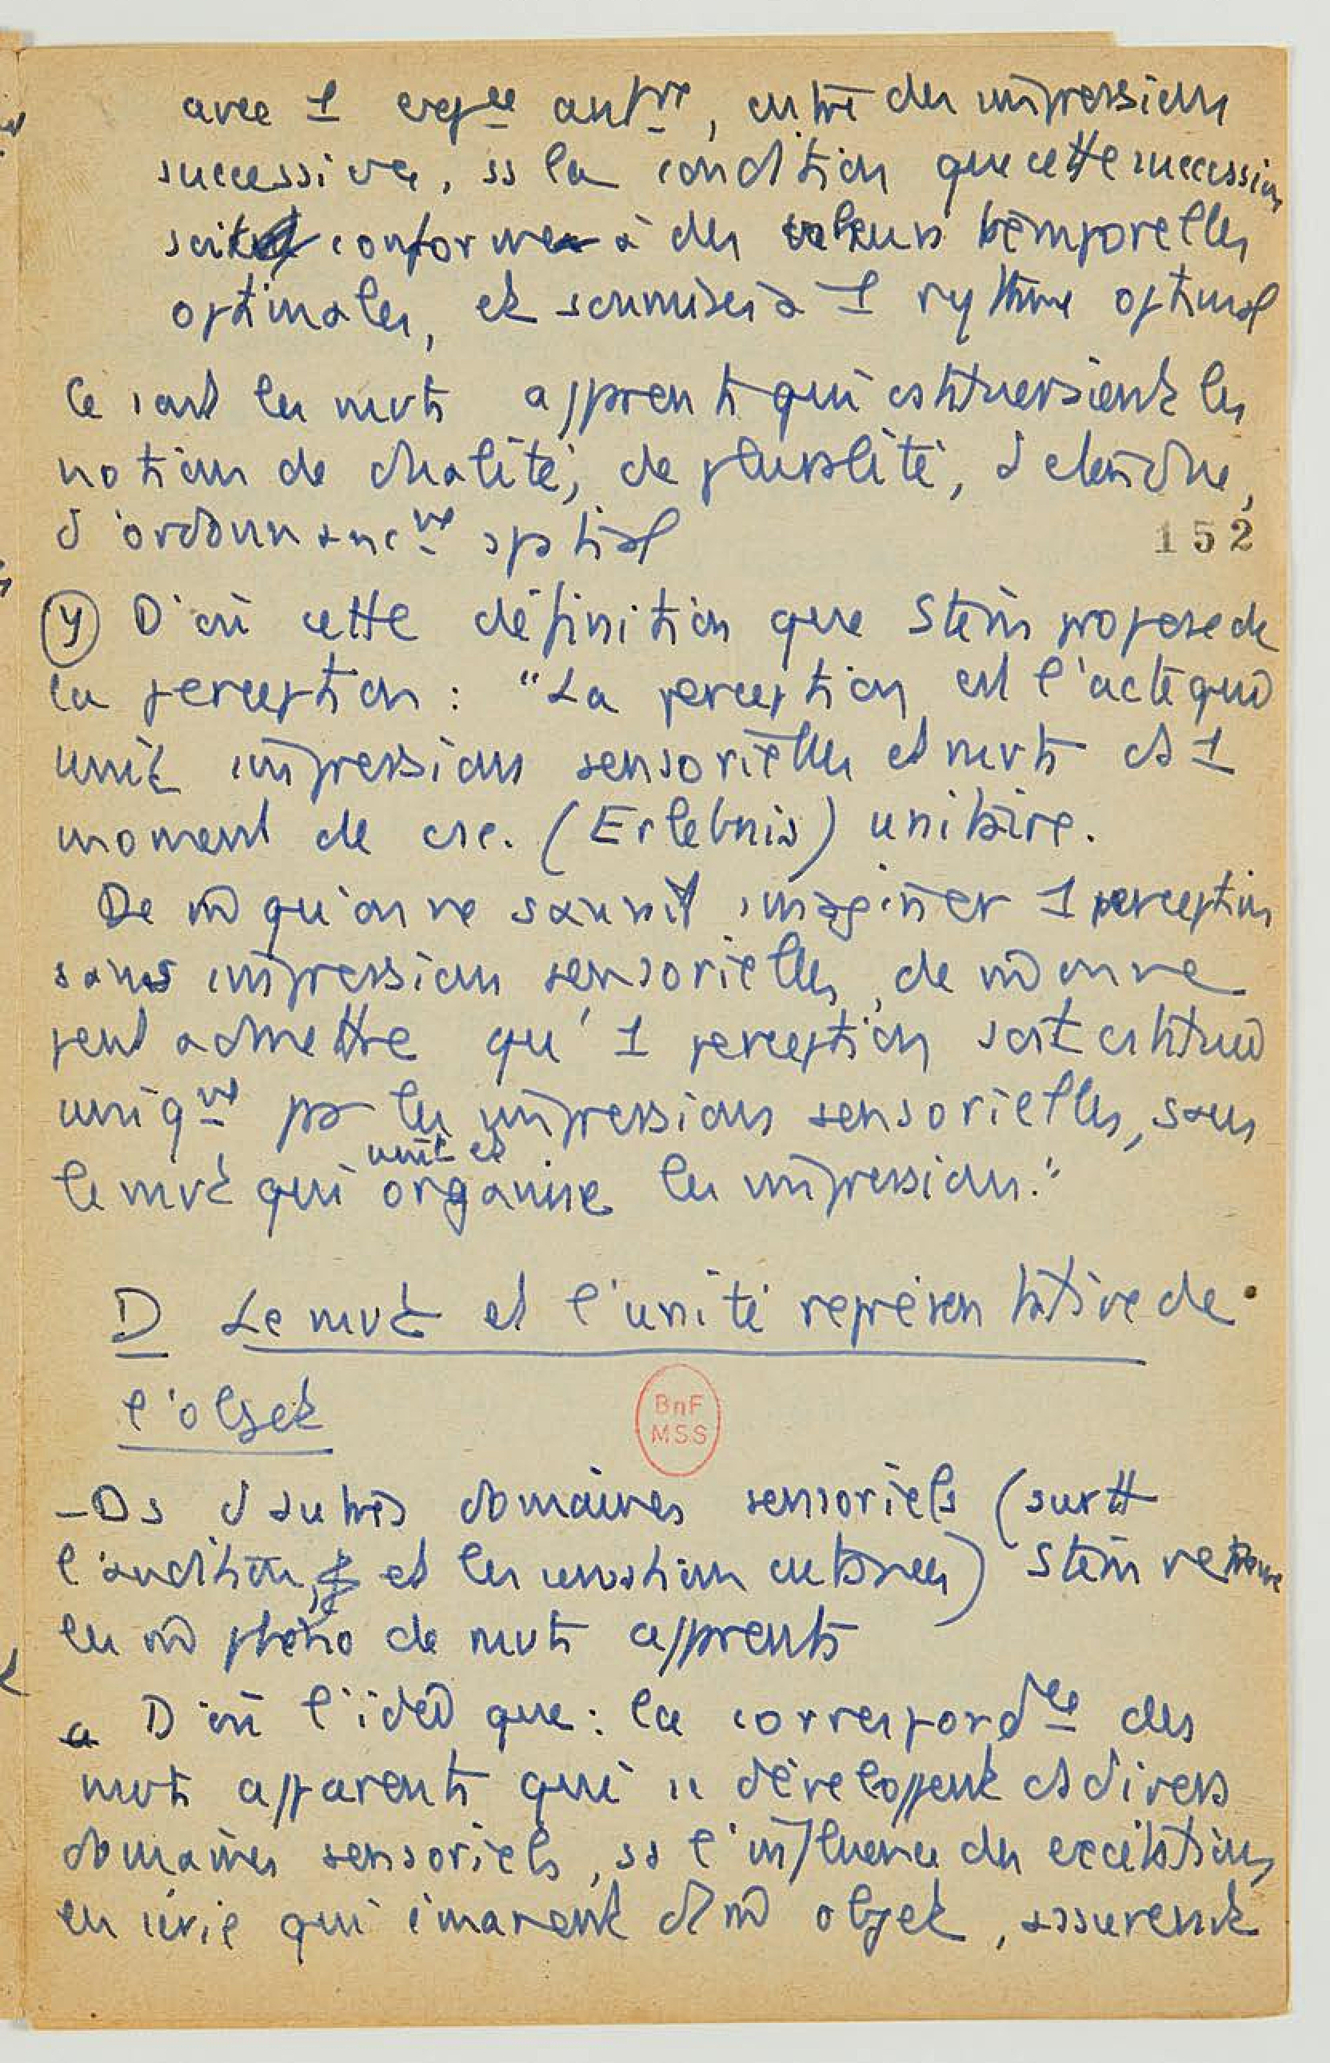 avec 1 exp^ce ant^re, entre des impressions
successives, ss la condition que cette succession
soit conforme à des valeurs temporelles
optimales, et soumise à 1 rythme optimal
Ce sont les mvts apprents qui cstitueraient les
notions de dualité, de pluralité, d'étendue,
d'ordonnanc^mt spatial
152
γ D'où cette définition que Stein propose de
la perception : "La perception est l'acte qui
unit impressions sensorielles et mvts ds 1
moment de csc. (Erlebnis) unitaire.
De m̂ qu'on ne saurait imaginer 1 perception
sans impressions sensorielles, de m̂ on ne
peut admettre qu'1 perception soit cstituée
uniq^mt par les impressions sensorielles, sans
unit et
le mvt qui organise les impressions."
D Le mvt et l'unité représentative de
l'objet
- Ds d'autres domaines sensoriels (surtt
l'audition, et les sensations cutanées) Stein retrouve
les m̂ phéno de mvts apprents
a D'où l'idée que : la correspond^ce des
mvts apparents qui se développent ds divers
domaines sensoriels, ss l'influence des excitations
en série qui émanent d'1 m̂ objet, assurent